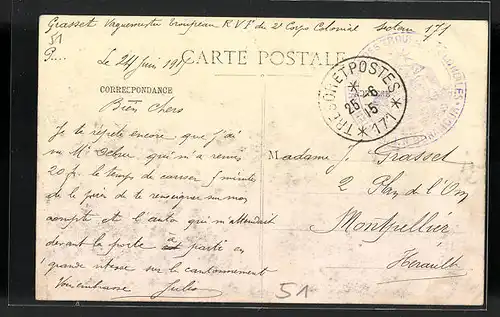 Grasset Vaguemestre Troupeau R V F du 2e Corps Colonial secteur 171
51
Le 24 juin 1915
CARTE POSTALE
TRESOR ET POSTES
25-6
15
* 171 *
CORRESPONDANCE
ADRESSE
Bien chers
Je te répète encore que j'ai
vu Mr qui m'a remis
20 f. le temps de causer 5 minutes
et le prier de te renseigner sur mon
compte et l'auto qui m'attendait
devant la porte est parti en
grande vitesse sur le cantonnement
Vous embrasse Jules
Madame J. Grasset
2 Plan de l'Om
Montpellier
Hérault
51